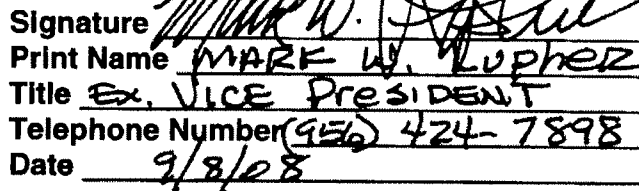 Signature Mark W.
Print Name MARK W. LupheR
Title Ex. VICE PresIDENT
Telephone Number (956) 424-7898
Date 9/8/08